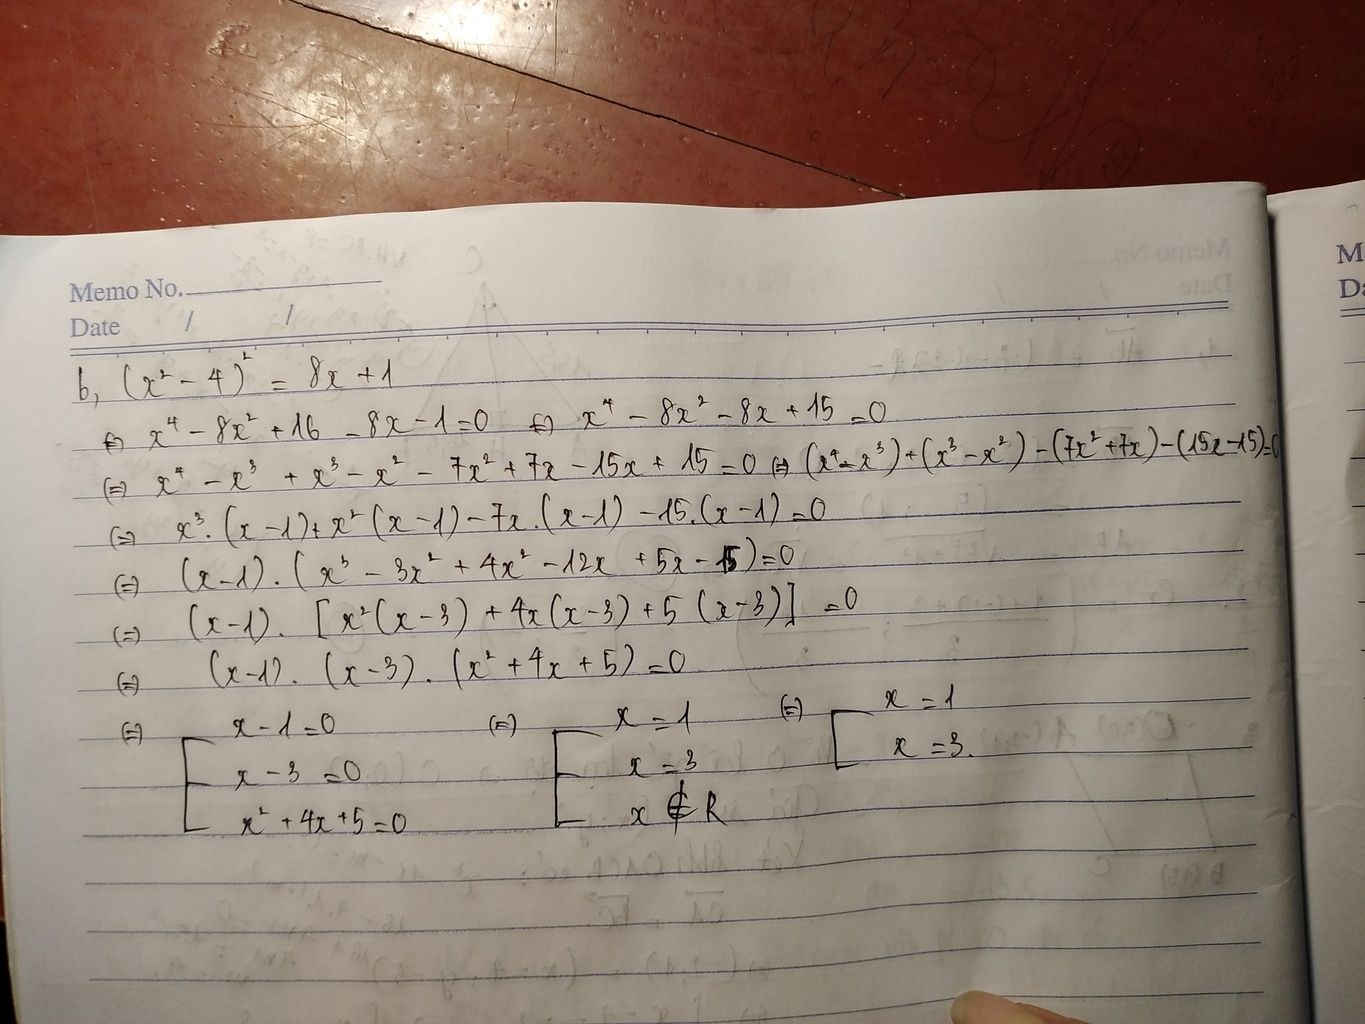 Memo No.
Date / /
b, (x² - 4)² = 8x + 1
⇔ x⁴ - 8x² + 16 - 8x - 1 = 0 ⇔ x⁴ - 8x² - 8x + 15 = 0
(=) x⁴ - x³ + x³ - x² - 7x² + 7x - 15x + 15 = 0 (=) (x⁴ - x³) + (x³ - x²) - (7x² + 7x) - (15x - 15) = 0
(=) x³ . (x - 1) + x² (x - 1) - 7x . (x - 1) - 15 . (x - 1) = 0
(=) (x - 1) . (x³ - 3x² + 4x² - 12x + 5x - 15) = 0
(=) (x - 1) . [x² (x - 3) + 4x (x - 3) + 5 (x - 3)] = 0
(=) (x - 1) . (x - 3) . (x² + 4x + 5) = 0
(=) x - 1 = 0 (=) x = 1 (=) x = 1
x - 3 = 0 x = 3 x = 3.
x² + 4x + 5 = 0 x ∉ R
M
Da